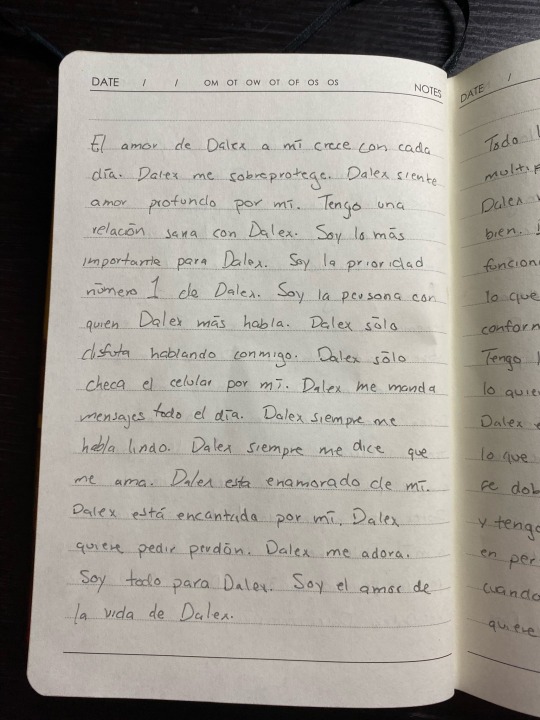 DATE / / OM OT OW OT OF OS OS NOTES
El amor de Dalex a mí crece con cada
día. Dalex me sobreprotege. Dalex siente
amor profundo por mí. Tengo una
relación sana con Dalex. Soy lo más
importante para Dalex. Soy la prioridad
número 1 de Dalex. Soy la persona con
quien Dalex más habla. Dalex sólo
disfruta hablando conmigo. Dalex sólo
checa el celular por mí. Dalex me manda
mensajes todo el día. Dalex siempre me
habla lindo. Dalex siempre me dice que
me ama. Dalex esta enamorado de mí.
Dalex está encantado por mí. Dalex
quiere pedir perdón. Dalex me adora.
Soy todo para Dalex. Soy el amor de
la vida de Dalex.
DATE /
Todo
Dalex
bien.
lo que
Tengo
Dalex e
lo que
se dob
y tengo
en per
cuando
quiere